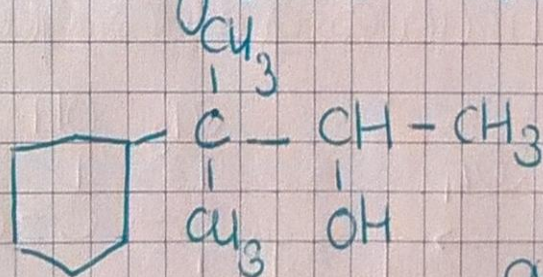 CH3
C — CH - CH3
CH3 OH